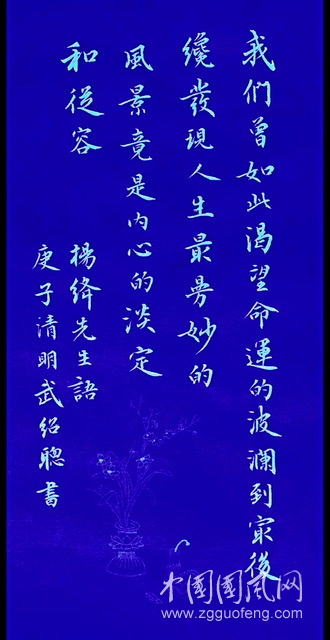 我们曾如此渴望命運的波澜到寂後
纔發現人生最曼妙的
風景竟是内心的淡定
和從容
楊绛先生語
庚子清明武紹聰書
中国国风网
www.zgguofeng.com